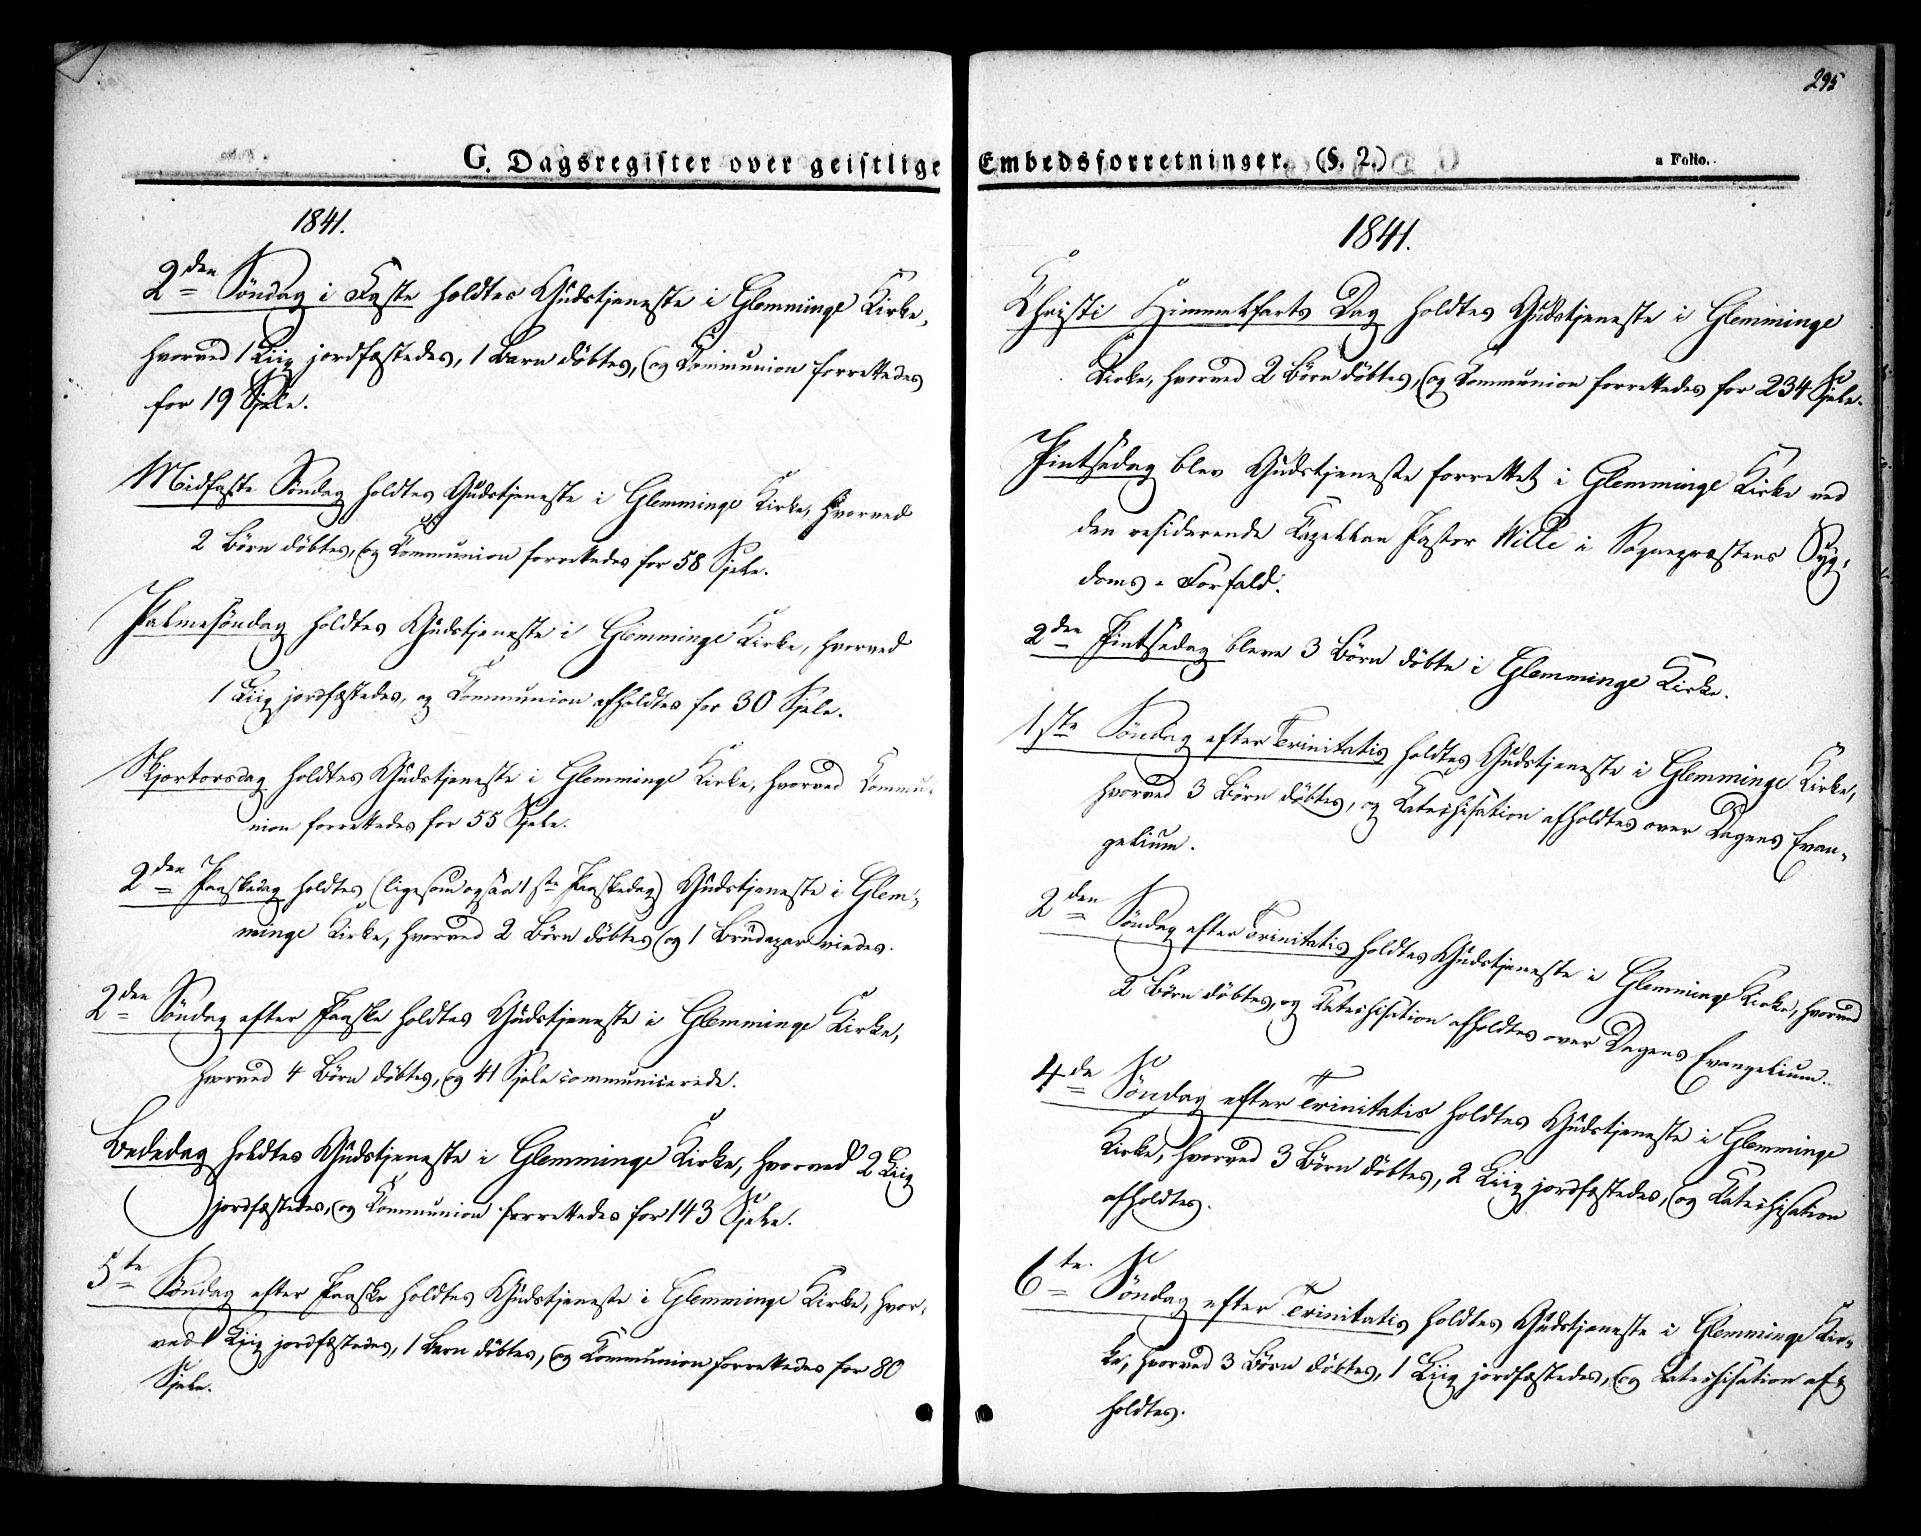 295
G. Dagsregister over geistlige
1841.
2den Søndag i Faste holdtes Gudstjeneste i Glemminge Kirke,
hvorved 1 Liig jordfæstedes, 1 Barn döbtes, og Communion forrettedes
for 19 Sjele.
Midfaste Søndag holdtes Gudstjeneste i Glemminge Kirke, hvorved
2 Börn döbtes, og Communion forrettedes for 58 Sjele.
Palmesöndag holdtes Gudstjeneste i Glemminge Kirke, hvorved
1 Liig jordfæstedes, og Communion afholdtes for 30 Sjele.
Skjortorsdag holdtes Gudstjeneste i Glemminge Kirke, hvorved Commu-
nion forrettedes for 55 Sjele.
2den Paaskedag holdtes (ligesom ogsaa 1ste Paaskedag) Gudstjeneste i Glem-
minge Kirke, hvorved 2 Börn döbtes og 1 Brudepar viedes.
2den Söndag efter Paaske holdtes Gudstjeneste i Glemminge Kirke,
hvorved 4 Börn döbtes, og 41 Sjele communicerede.
Bededag holdtes Gudstjeneste i Glemminge Kirke, hvorved 2 Liig
jordfæstedes, og Communion forrettedes for 143 Sjele.
5te Söndag efter Paaske holdtes Gudstjeneste i Glemminge Kirke, hvor-
ved 1 Liig jordfæstedes, 1 Barn döbtes, og Communion forrettedes for 80
Sjele.
Embedsforretninger. (§. 2.) a Folio.
1841.
Christi Himmelfarts Dag holdtes Gudstjeneste i Glemminge
Kirke, hvorved 2 Börn döbtes, og Communion forrettedes for 234 Sjele.
Pintsedag blev Gudstjeneste forrettet i Glemminge Kirke ved
den residerende Capellan Pastor Wille i Sognepræstens Syg-
doms-Forfald.
2den Pintsedag bleve 3 Börn döbte i Glemminge Kirke.
1ste Söndag efter Trinitatis holdtes Gudstjeneste i Glemminge Kirke,
hvorved 3 Börn döbtes, og Catechisation afholdtes over Dagens Evan-
gelium.
2den Söndag efter Trinitatis holdtes Gudstjeneste i Glemminge Kirke, hvorved
2 Börn döbtes, og Catechisation afholdtes over Dagens Evangelium.
4de Söndag efter Trinitatis holdtes Gudstjeneste i Glemminge
Kirke, hvorved 3 Börn döbtes, 2 Liig jordfæstedes, og Catechisation
afholdtes.
6te Söndag efter Trinitatis holdtes Gudstjeneste i Glemminge Kir-
ke, hvorved 3 Börn döbtes, 1 Liig jordfæstedes, og Catechisation af-
holdtes.